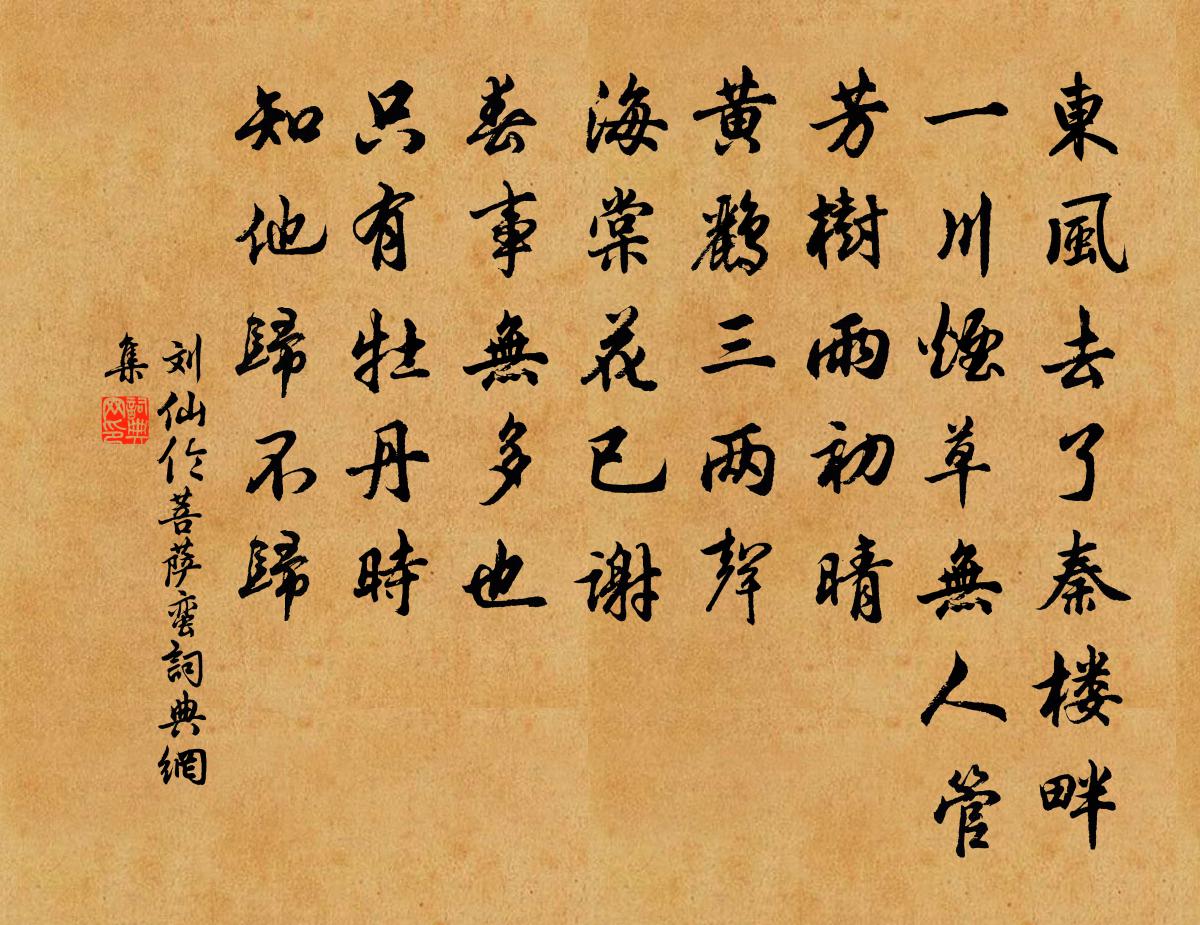 東風去了秦楼畔
一川煙草無人管
芳樹雨初晴
黄鸝三两聲
海棠花已謝
春事無多也
只有牡丹時
知他歸不歸
刘仙伦菩萨蛮詞典網
集
詞典网印